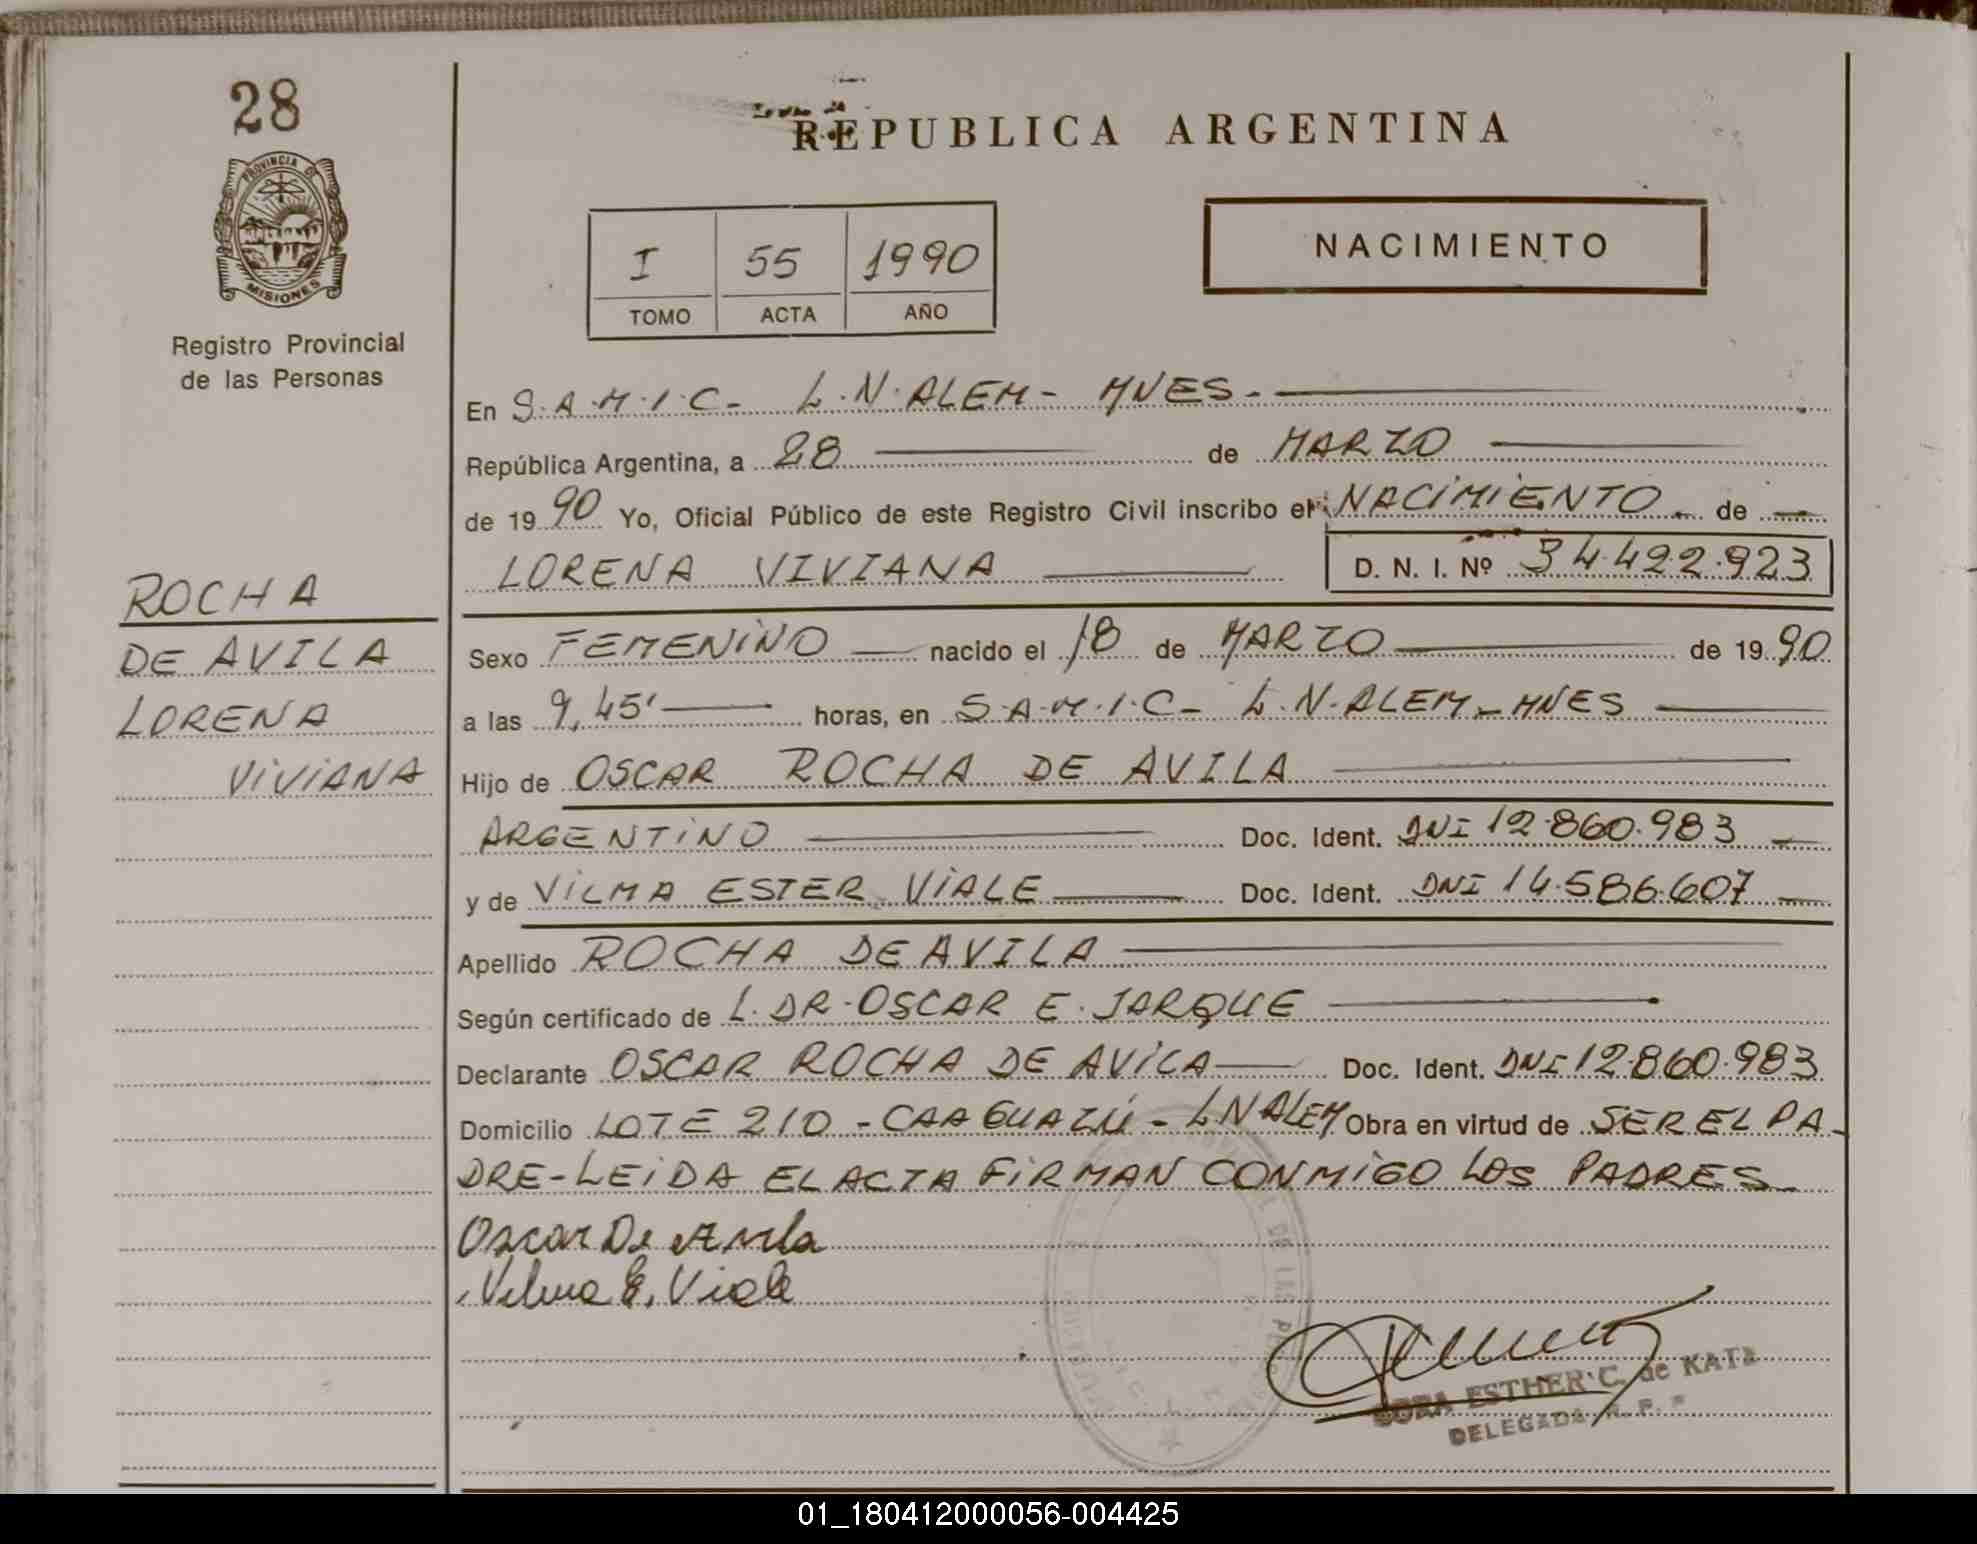 28
PROVINCIA DE
MISIONES
Registro Provincial
de las Personas
ROCHA
DE AVILA
LORENA
VIVIANA
REPUBLICA ARGENTINA
I 55 1990
TOMO ACTA AÑO
NACIMIENTO
En S.A.M.I.C- L.N.ALEM- MNES-
República Argentina, a 28 de MARZO
de 1990 Yo, Oficial Público de este Registro Civil inscribo el NACIMIENTO de
LORENA VIVIANA D. N. I. Nº 34.492.923
Sexo FEMENINO nacido el 18 de MARZO de 1990
a las 9,45' horas, en S.A.M.I.C- L.N.ALEM-MNES
Hijo de OSCAR ROCHA DE AVILA
ARGENTINO Doc. Ident. DNI 12.860.983
y de VILMA ESTER VIALE Doc. Ident. DNI 14.586.607
Apellido ROCHA DE AVILA
Según certificado de L. DR. OSCAR E. JARQUE
Declarante OSCAR ROCHA DE AVILA Doc. Ident. DNI 12.860.983
Domicilio LOTE 210 - CAAGUAZÚ - LNALEM Obra en virtud de SER EL PA-
DRE-LEIDA EL ACTA FIRMAN CONMIGO LOS PADRES-
Oscar De Avila
Vilma E. Viale
ESTHER C. de KATZ
DELEGADA R. P. P
01_180412000056-004425